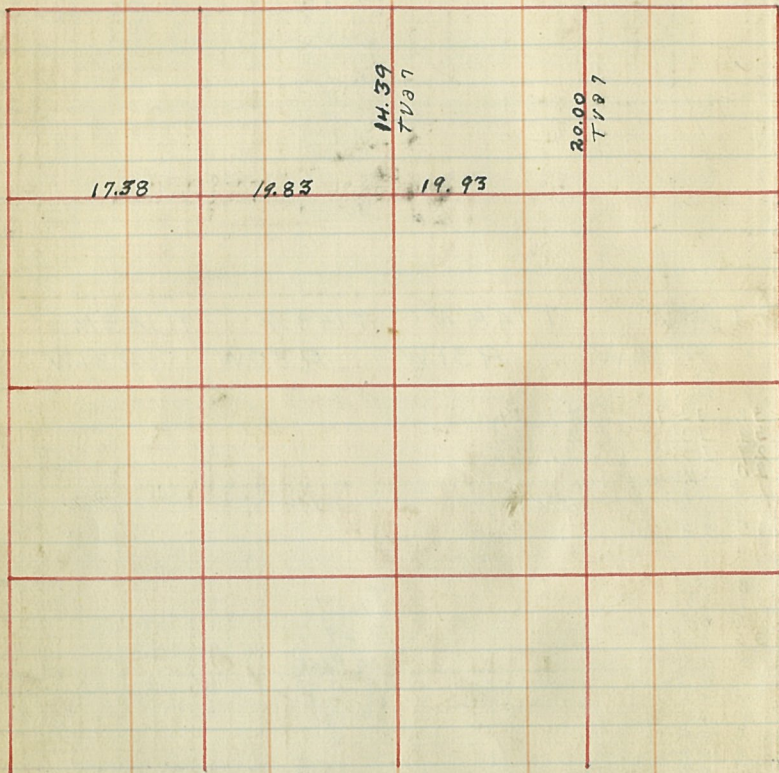 14.39
20.00
17.38 19.83 19.93